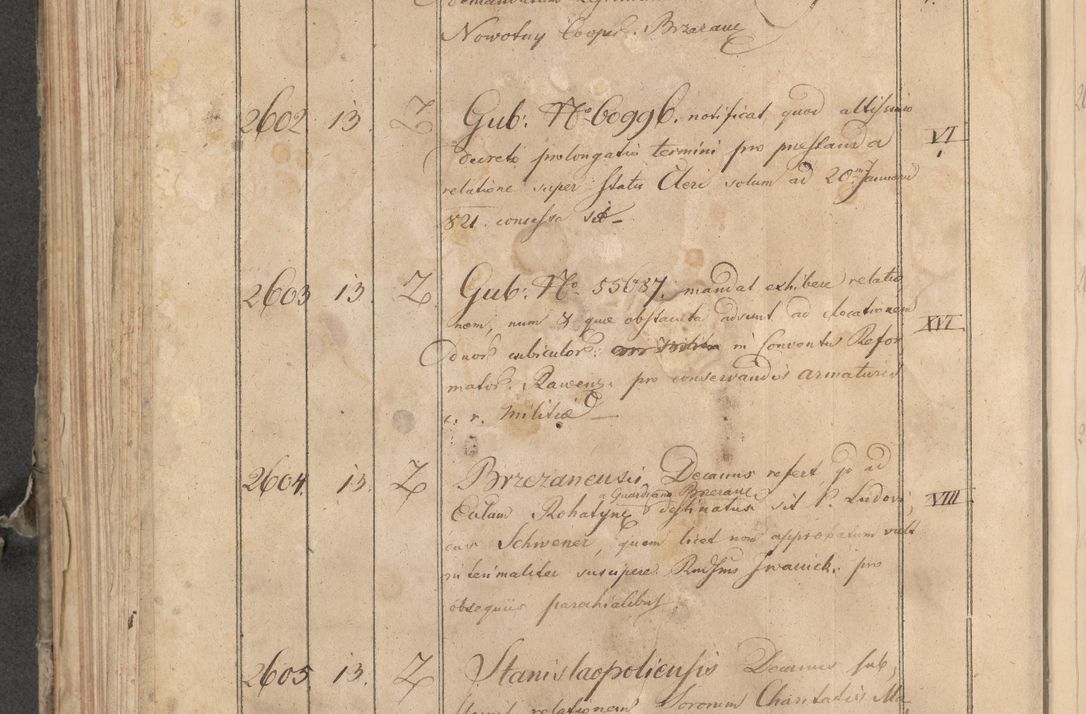 Nowotny Cooper. Brzezane
2602 13. Z Gub: No 60996. notificat, quod altissimo VI
decreto prolongatio termini pro praestanda
relatione super statu Cleri solum ad 20m Januarii
821. concessa sit
2603 13. Z Gub: No 55637. mandat exhibere relatio
nem, num & quae obstacula adsunt ad elocationem XVI
duor. cubiculor: in Conventu Refor
mator. Rawens. pro conservandis armaturis
c. r. militiae
2604. 13. Z Brzezanensis Decanus refert, qo ad VIII
a Guardiano Brzezane
Curam Rohatyne destinatus sit P. Ludovi
cus Schwener, quem licet non approbatum vult
interimaliter suscipere Rndssmus Iwanick. pro
obsequiis parochialibus.
2605 13. Z Stanislaopoliensis Decanus sub,
relationem Sororum Charitatis Ma